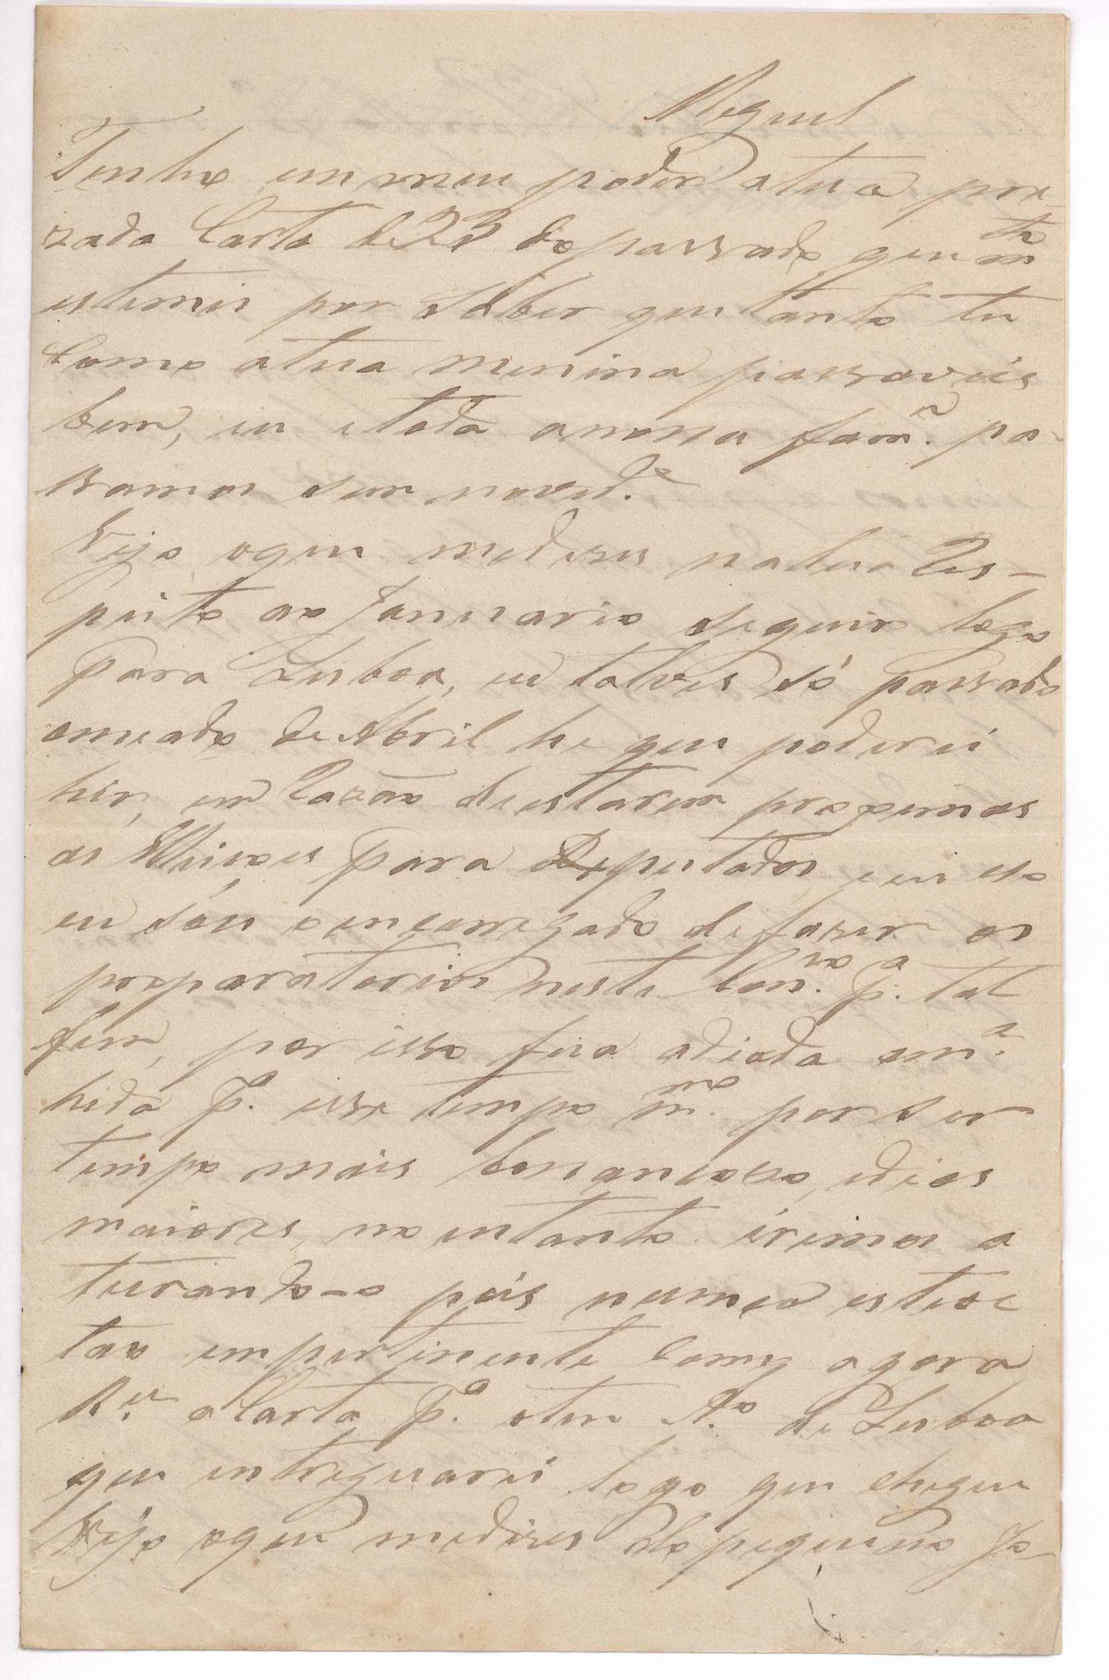 Miguel
Tenho em meu poder atua pre-
zada Carta de 23 do passado que mto
estimei por saber que tanto tu
Como atua menina passaveis
bem, eu etoda anossa fama. pa-
ssamos sem novide.
Vejo oque medizes natua Res-
peito ao Januario seguir logo
para Lisboa, eu talves só passado
omeado de Abril he que poderei
hir, em Razão de estarem proximas
as Elleicoes para Deputados, e eu
eu sou o encarregado defaser os
preparatorios neste Conco. pa. tal
fim, por isso fica adiada a ma.
hida pa. esse tempo mmo. por ser
tempo mais bonançoso, edias
maiores, no entanto iremos a
turando-o pois nunca esteve
tao empertinente Como agora
Rei. aCarta pa. oteu Ao. de Lisboa
que entreguarei logo que chegue
Vejo oque medizes do pequeno Jo-